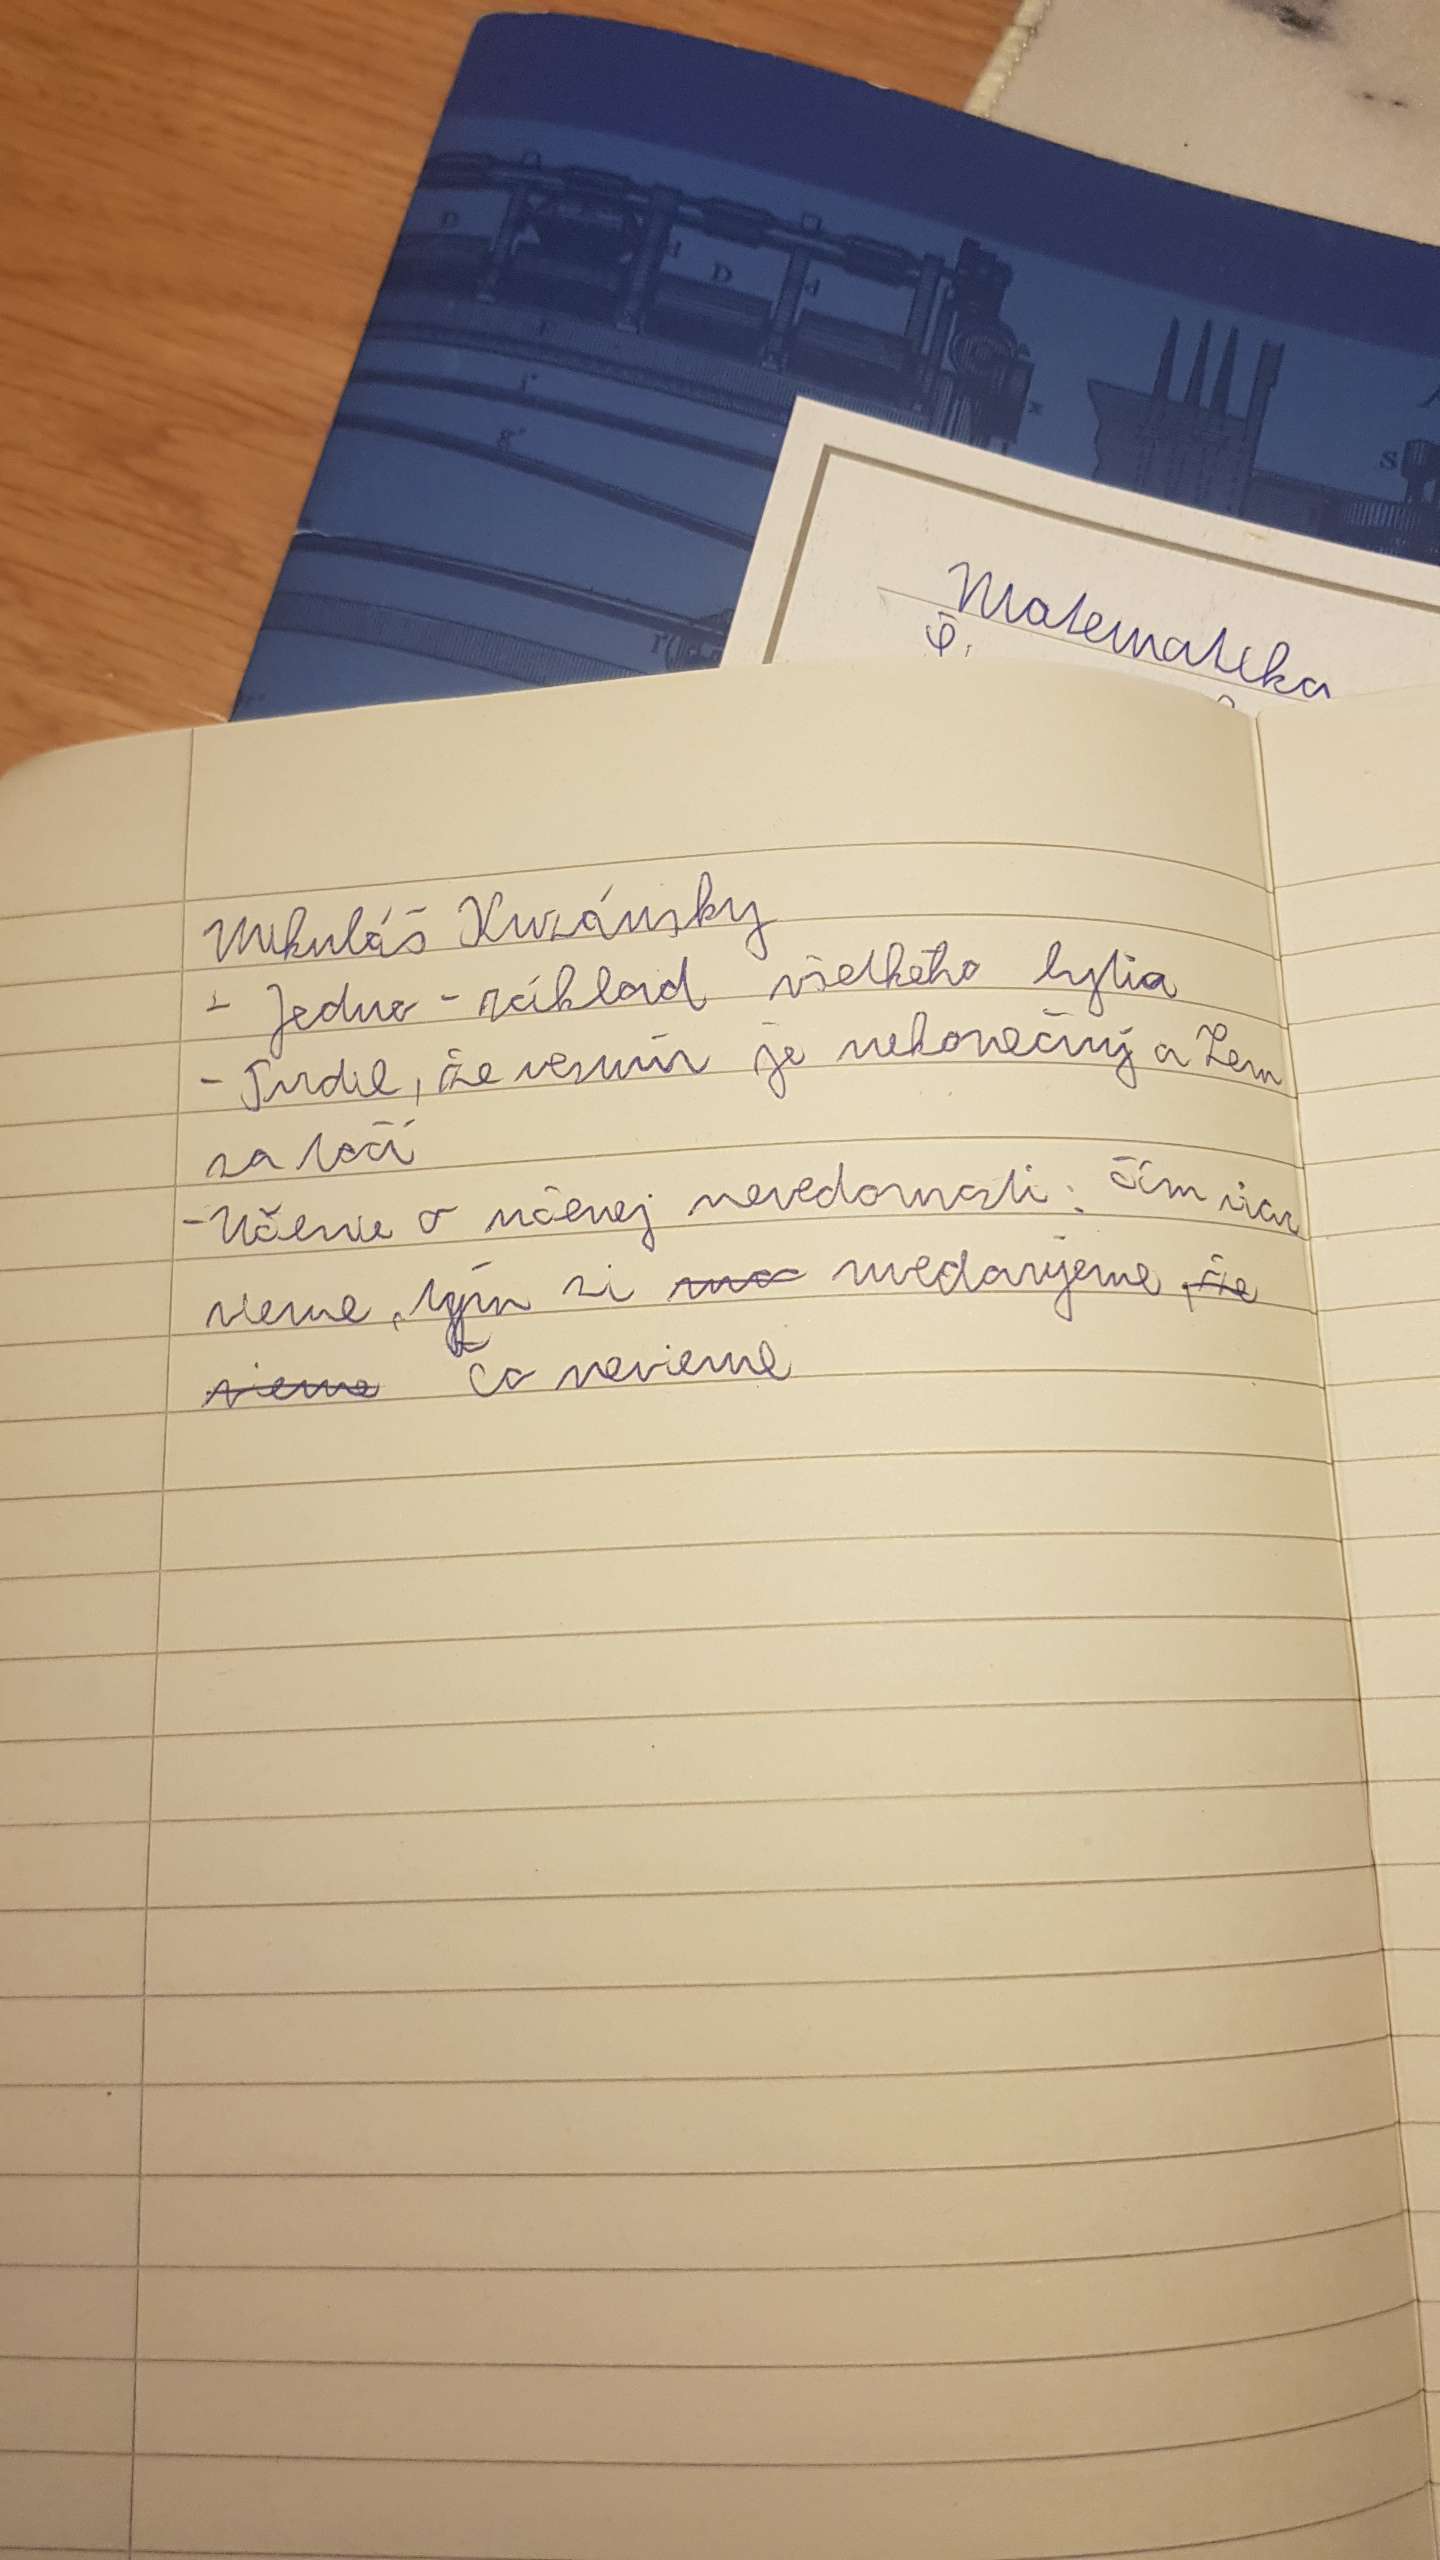 Matematika
φ.
Mikuláš Kuzánsky
- Jedno - základ všetkého bytia
- Tvrdil, že vesmír je nekonečný a Zem
sa točí
- Učenie o učenej nevedomosti: čím viac
vieme, tým si uvedomujeme, že
vieme čo nevieme